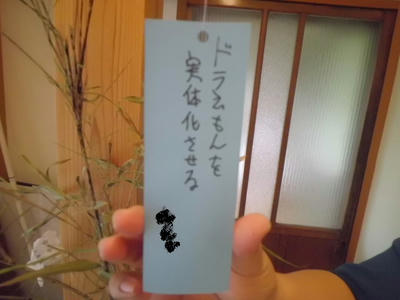 ドラえもんを
実体化させる